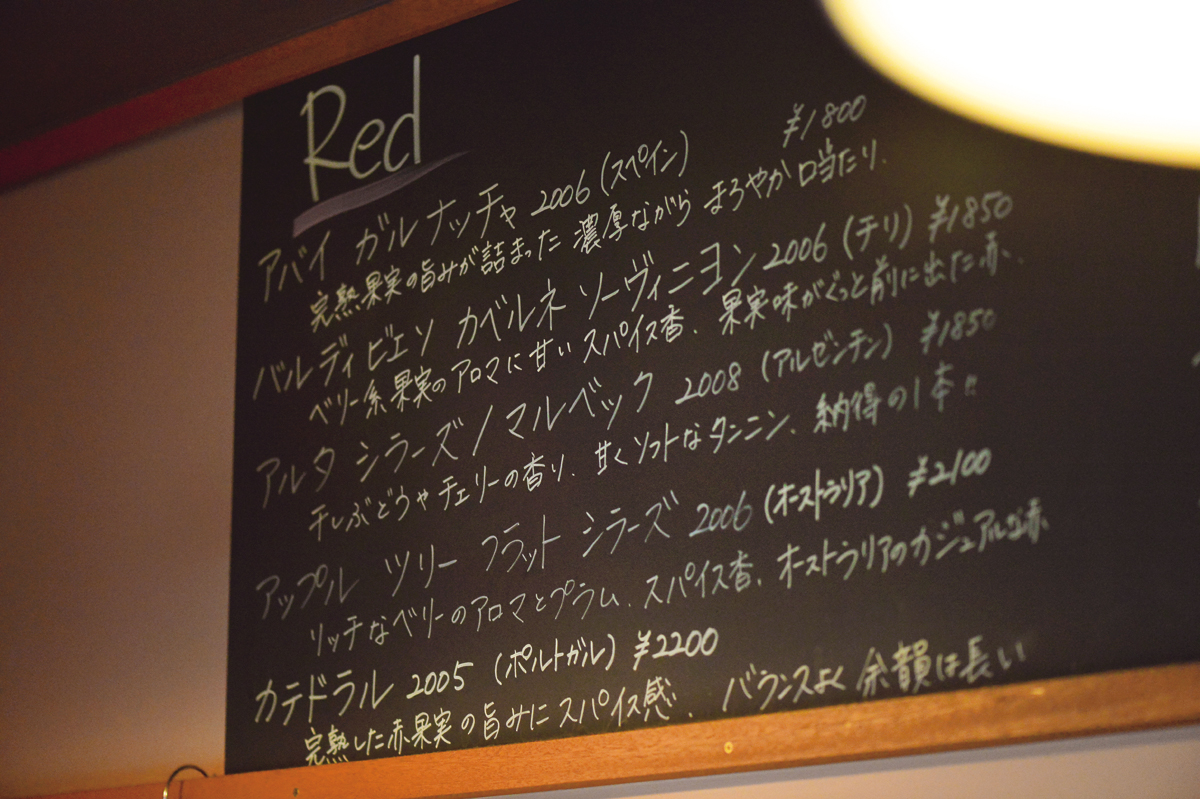 Red
アバイ ガルナッチャ 2006 (スペイン) ¥1800
完熟果実の旨みが詰まった 濃厚ながら まろやか口当たり.
バルディビエソ カベルネ ソーヴィニヨン 2006 (チリ) ¥1850
ベリー系果実のアロマに甘いスパイス香、果実味がぐっと前に出た赤、
アルタ シラーズ/マルベック 2008 (アルゼンチン) ¥1850
干しぶどうやチェリーの香り、甘くソフトなタンニン、納得の1本!!
アップル ツリー フラット シラーズ 2006 (オーストラリア) ¥2100
リッチなベリーのアロマとプラム、スパイス香、オーストラリアのカジュアルな赤、
カテドラル 2005 (ポルトガル) ¥2200
完熟した赤果実の旨みにスパイス感、バランスよく 余韻は長い